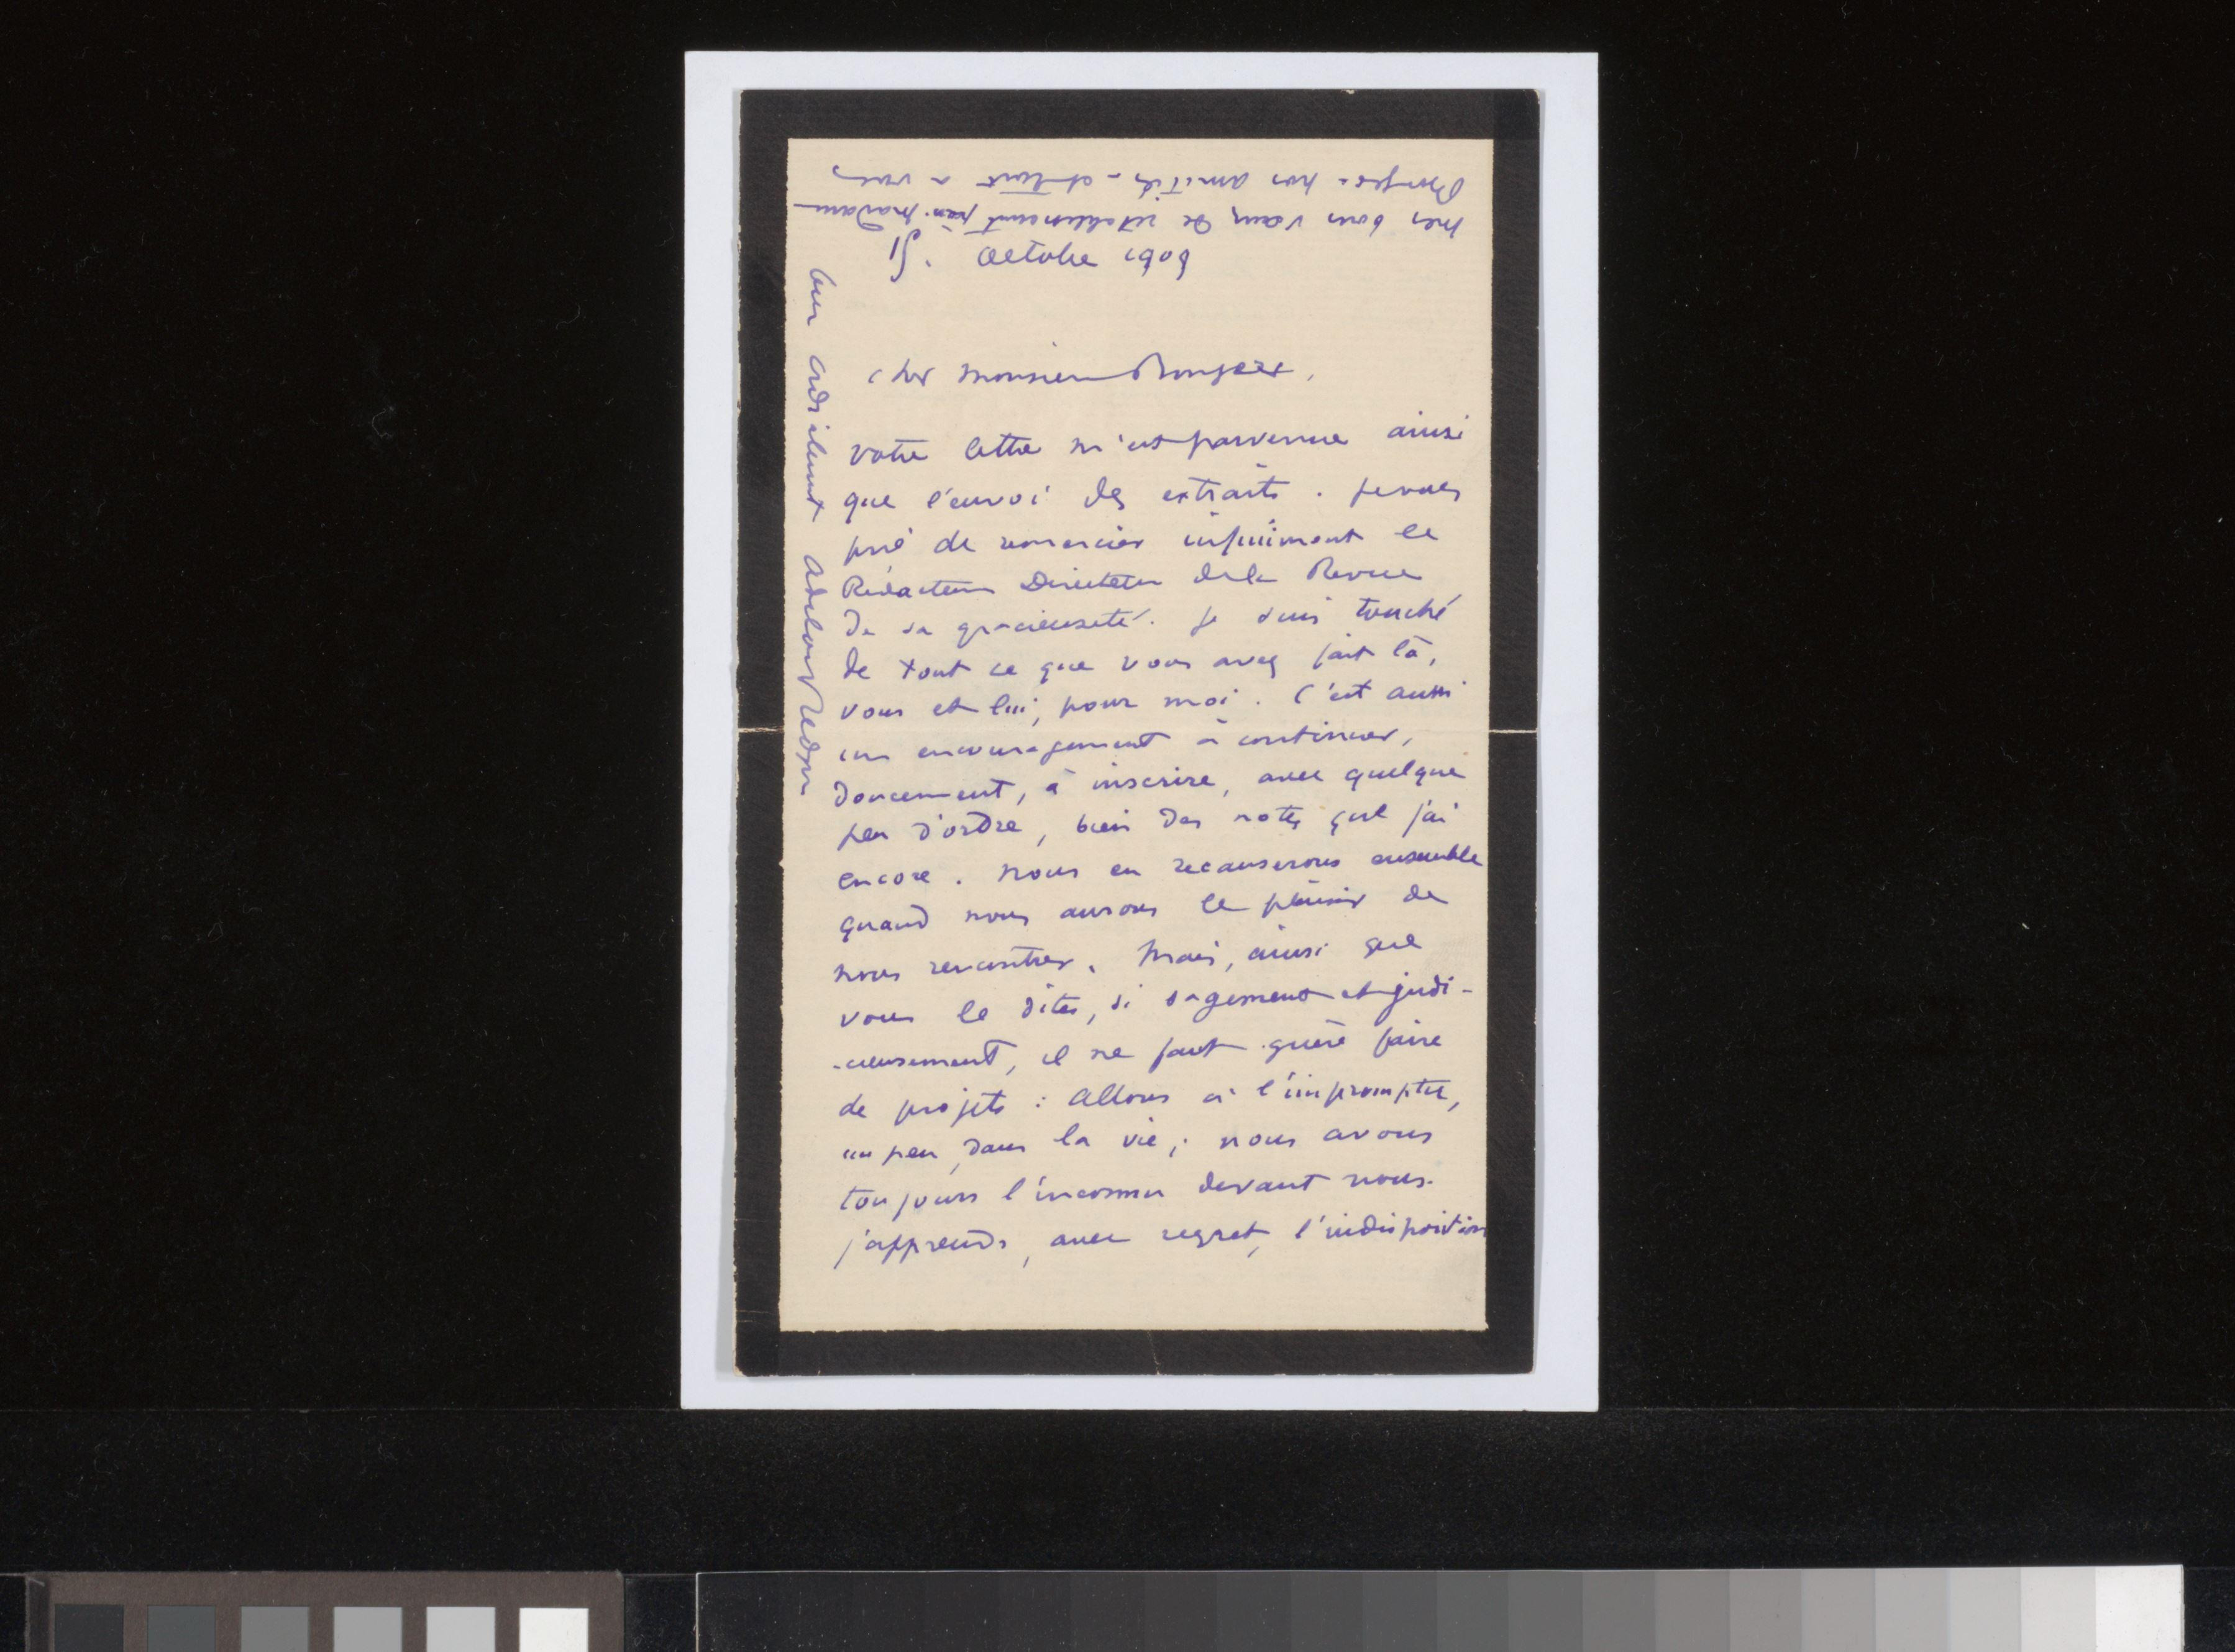 15. Octobre 1909
cher Monsieur Bonger,
votre lettre m'est parvenue ainsi
que l'envoi des extraits. je vous
prie de remercier infiniment le
Rédacteur Directeur de la Revue
de sa gracieuseté. je suis touché
de tout ce que vous avez fait là,
vous et lui, pour moi. C'est aussi
un encouragement à continuer,
doucement, à inscrire, avec quelque
peu d'ordre, bien des notes que j'ai
encore. nous en recauserons ensemble
quand nous aurons le plaisir de
nous rencontrer. Mais, ainsi que
vous le dites, si sagement et judi-
-cieusement, il ne faut guère faire
de projets : allons à l'impromptu,
un peu, dans la vie ; nous avons
toujours l'inconnu devant nous.
j'apprends, avec regret, l'indisposition
mes bons vœux de rétablissement pour madame
Bonger. nos amitiés - et tout à vous
bien cordialement Odilon Redon